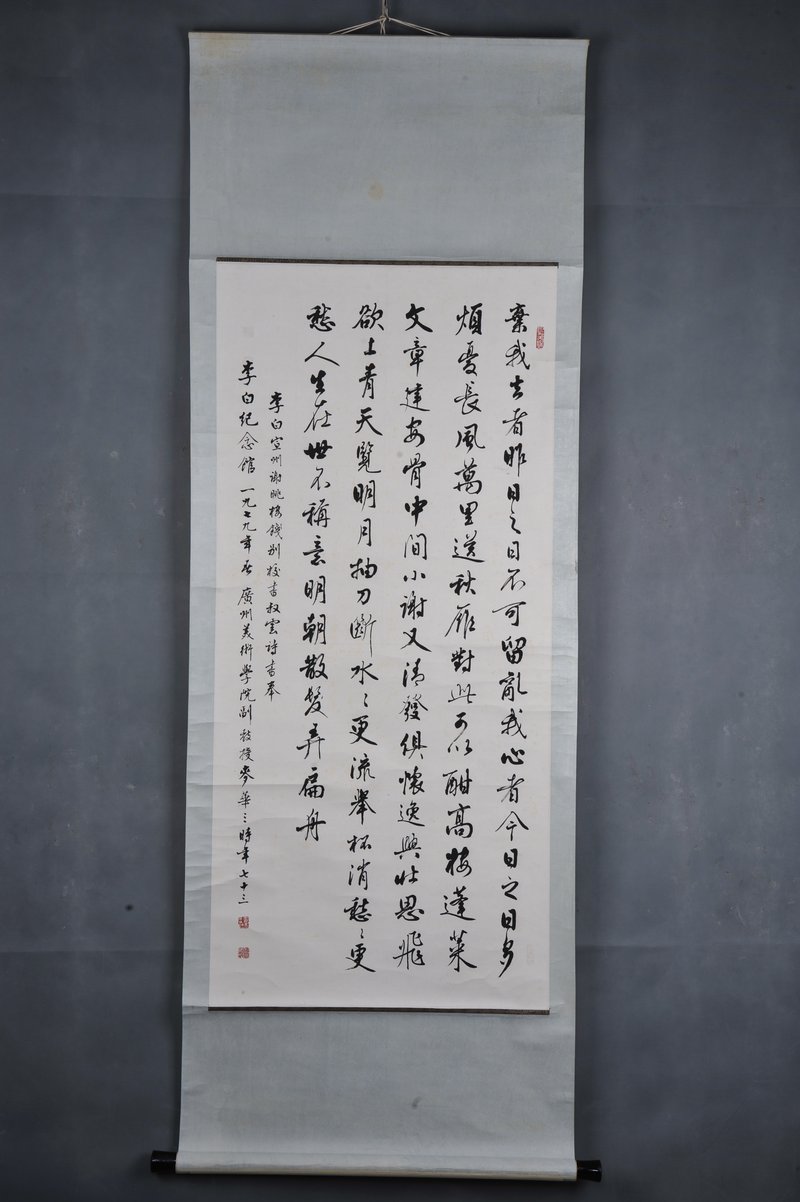 棄我去者昨日之日不可留亂我心者今日之日多
煩憂長風萬里送秋雁對此可以酣高樓蓬萊
文章建安骨中間小謝又清發俱懷逸興壯思飛
欲上青天覽明月抽刀斷水〻更流舉杯消愁〻更
愁人生在世不稱意明朝散髮弄扁舟
李白宣州謝朓樓餞別校書叔雲詩書奉
李白紀念館 一九七九年春 廣州美術學院副教授麥華三時年七十三